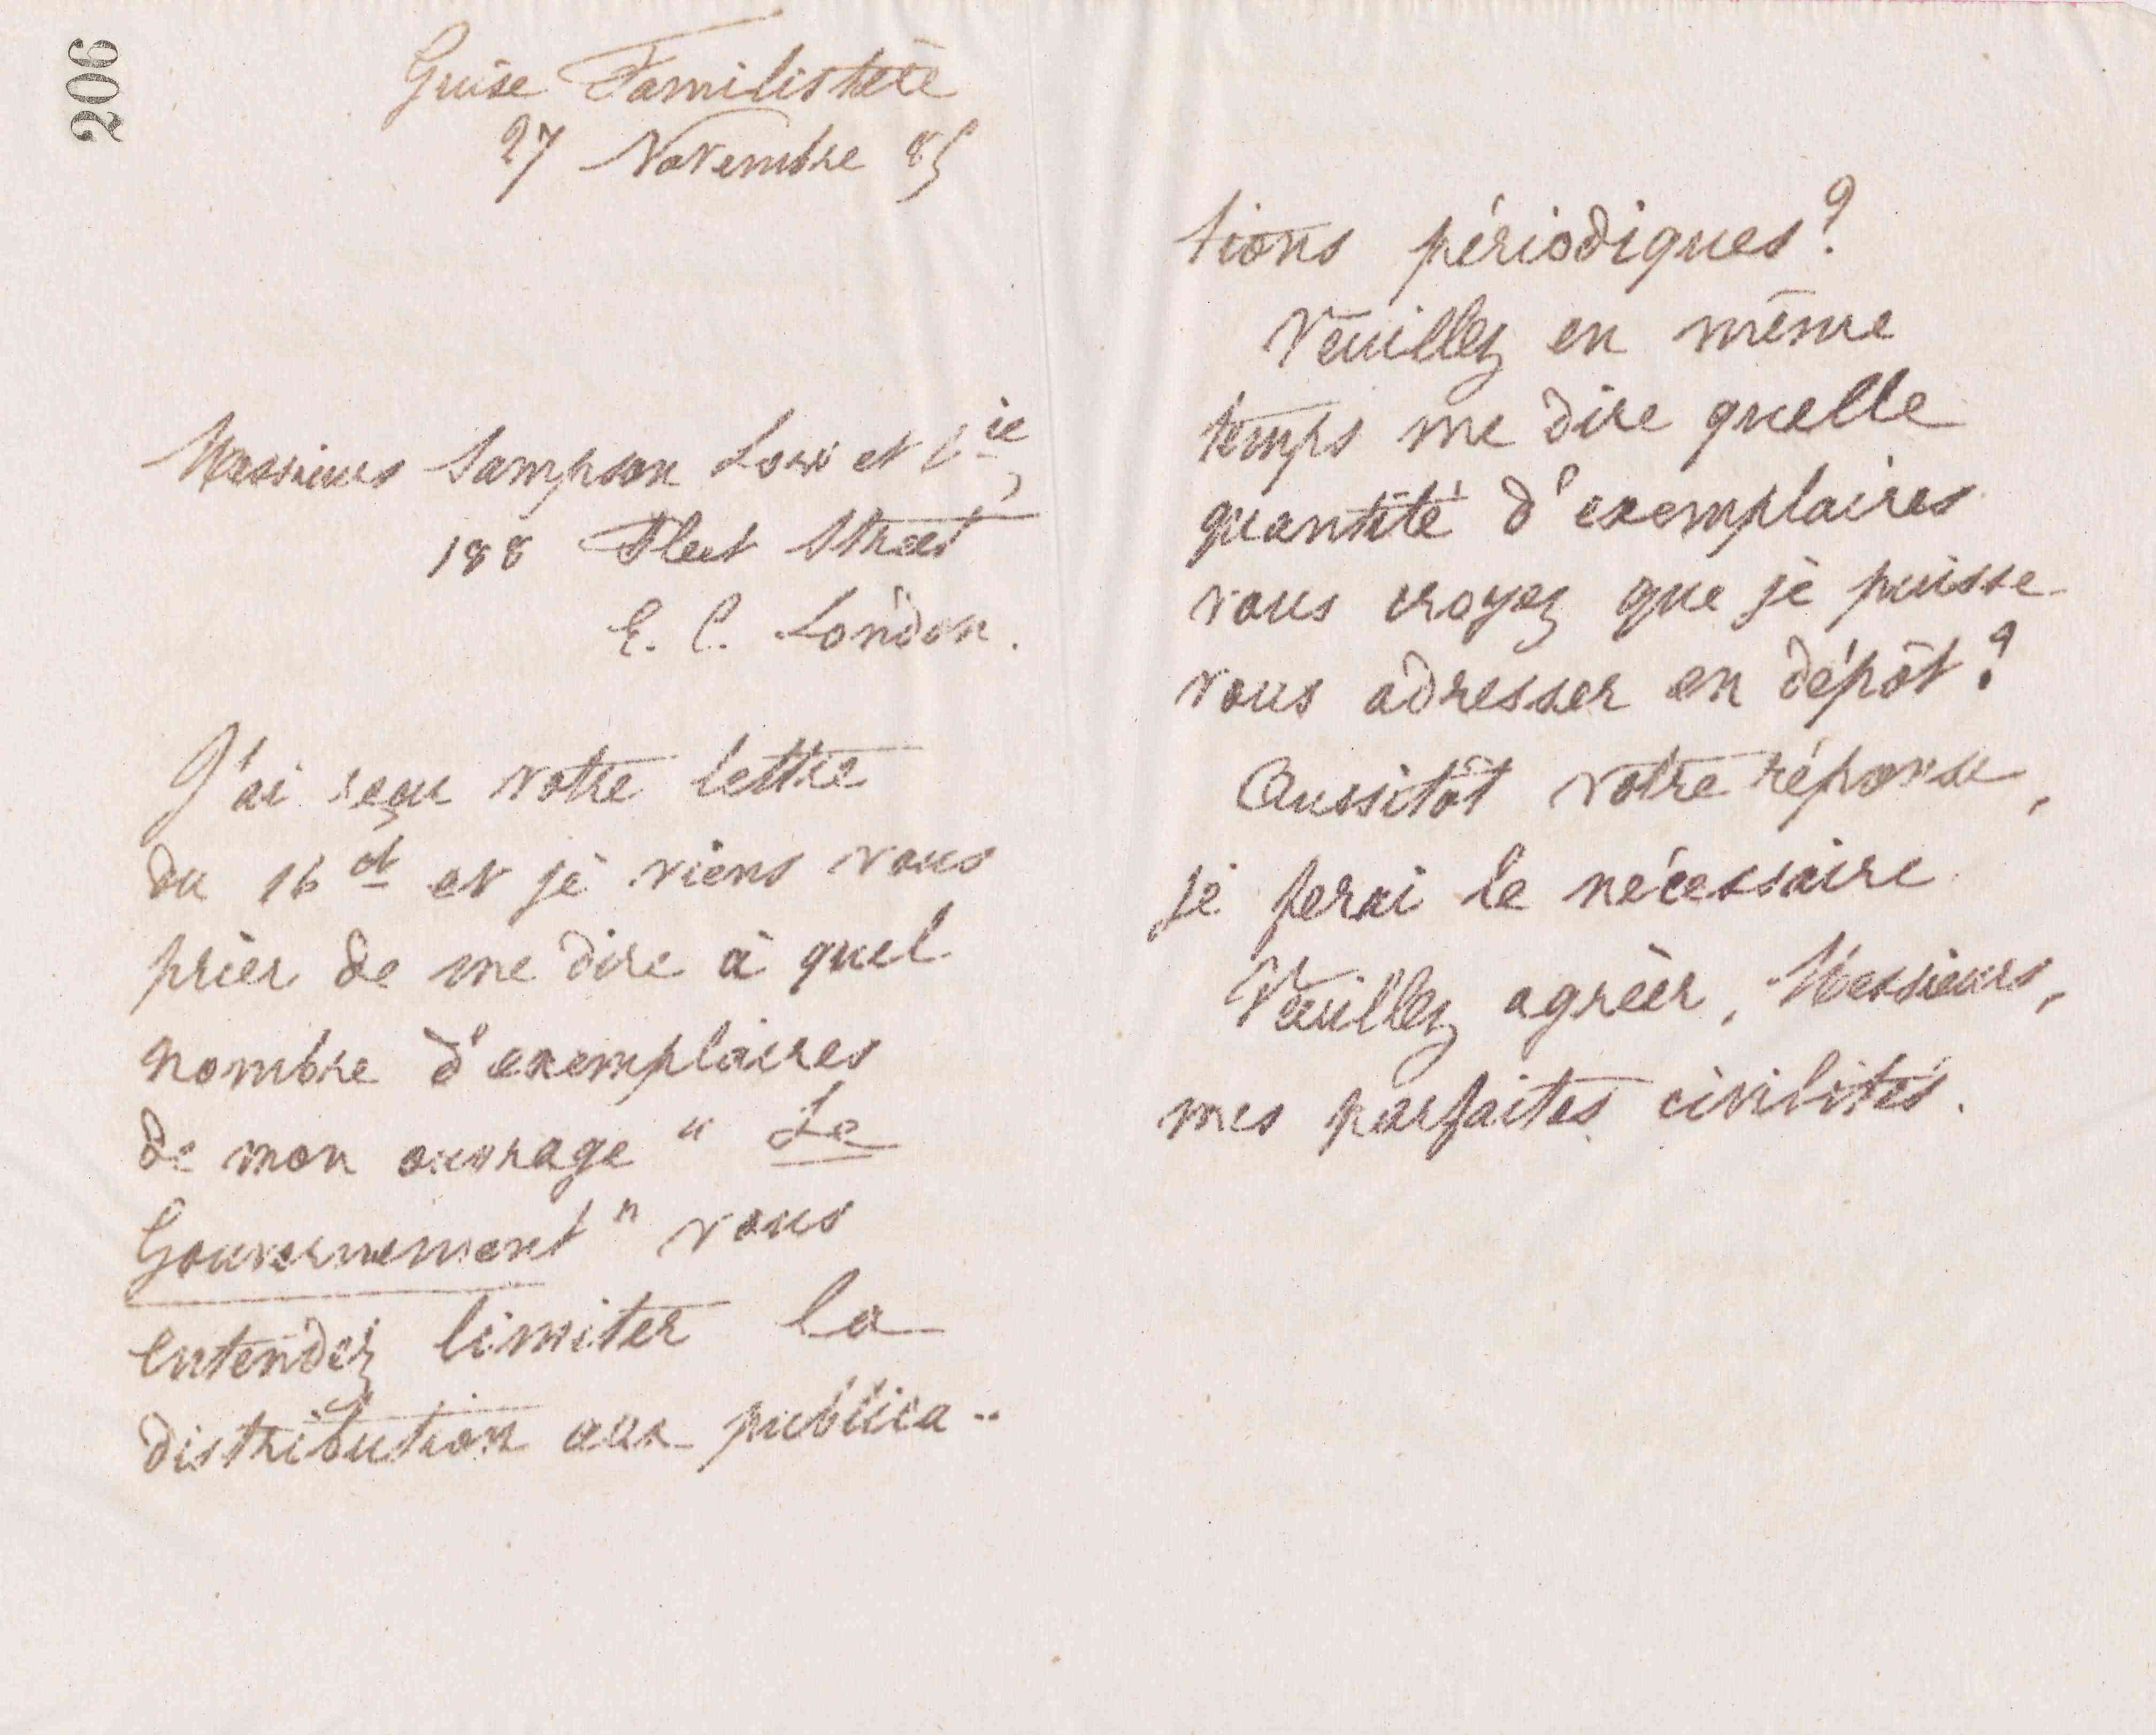 206
Guise Familistère
27 Novembre 85
Messieurs Sampson Low et Cie,
188 Fleet Street
E. C. London.
J'ai reçu votre lettre
du 16 ct et je viens vous
prier de me dire à quel
nombre d'exemplaires
de mon ouvrage " Le
Gouvernement " vous
entendez limiter la
distribution aux publica-
tions périodiques?
Veuillez en même
temps me dire quelle
quantité d'exemplaires
vous croyez que je puisse
vous adresser en dépôt?
Aussitôt votre réponse,
je ferai le nécessaire.
Veuillez agréer, Messieurs,
mes parfaites civilités.